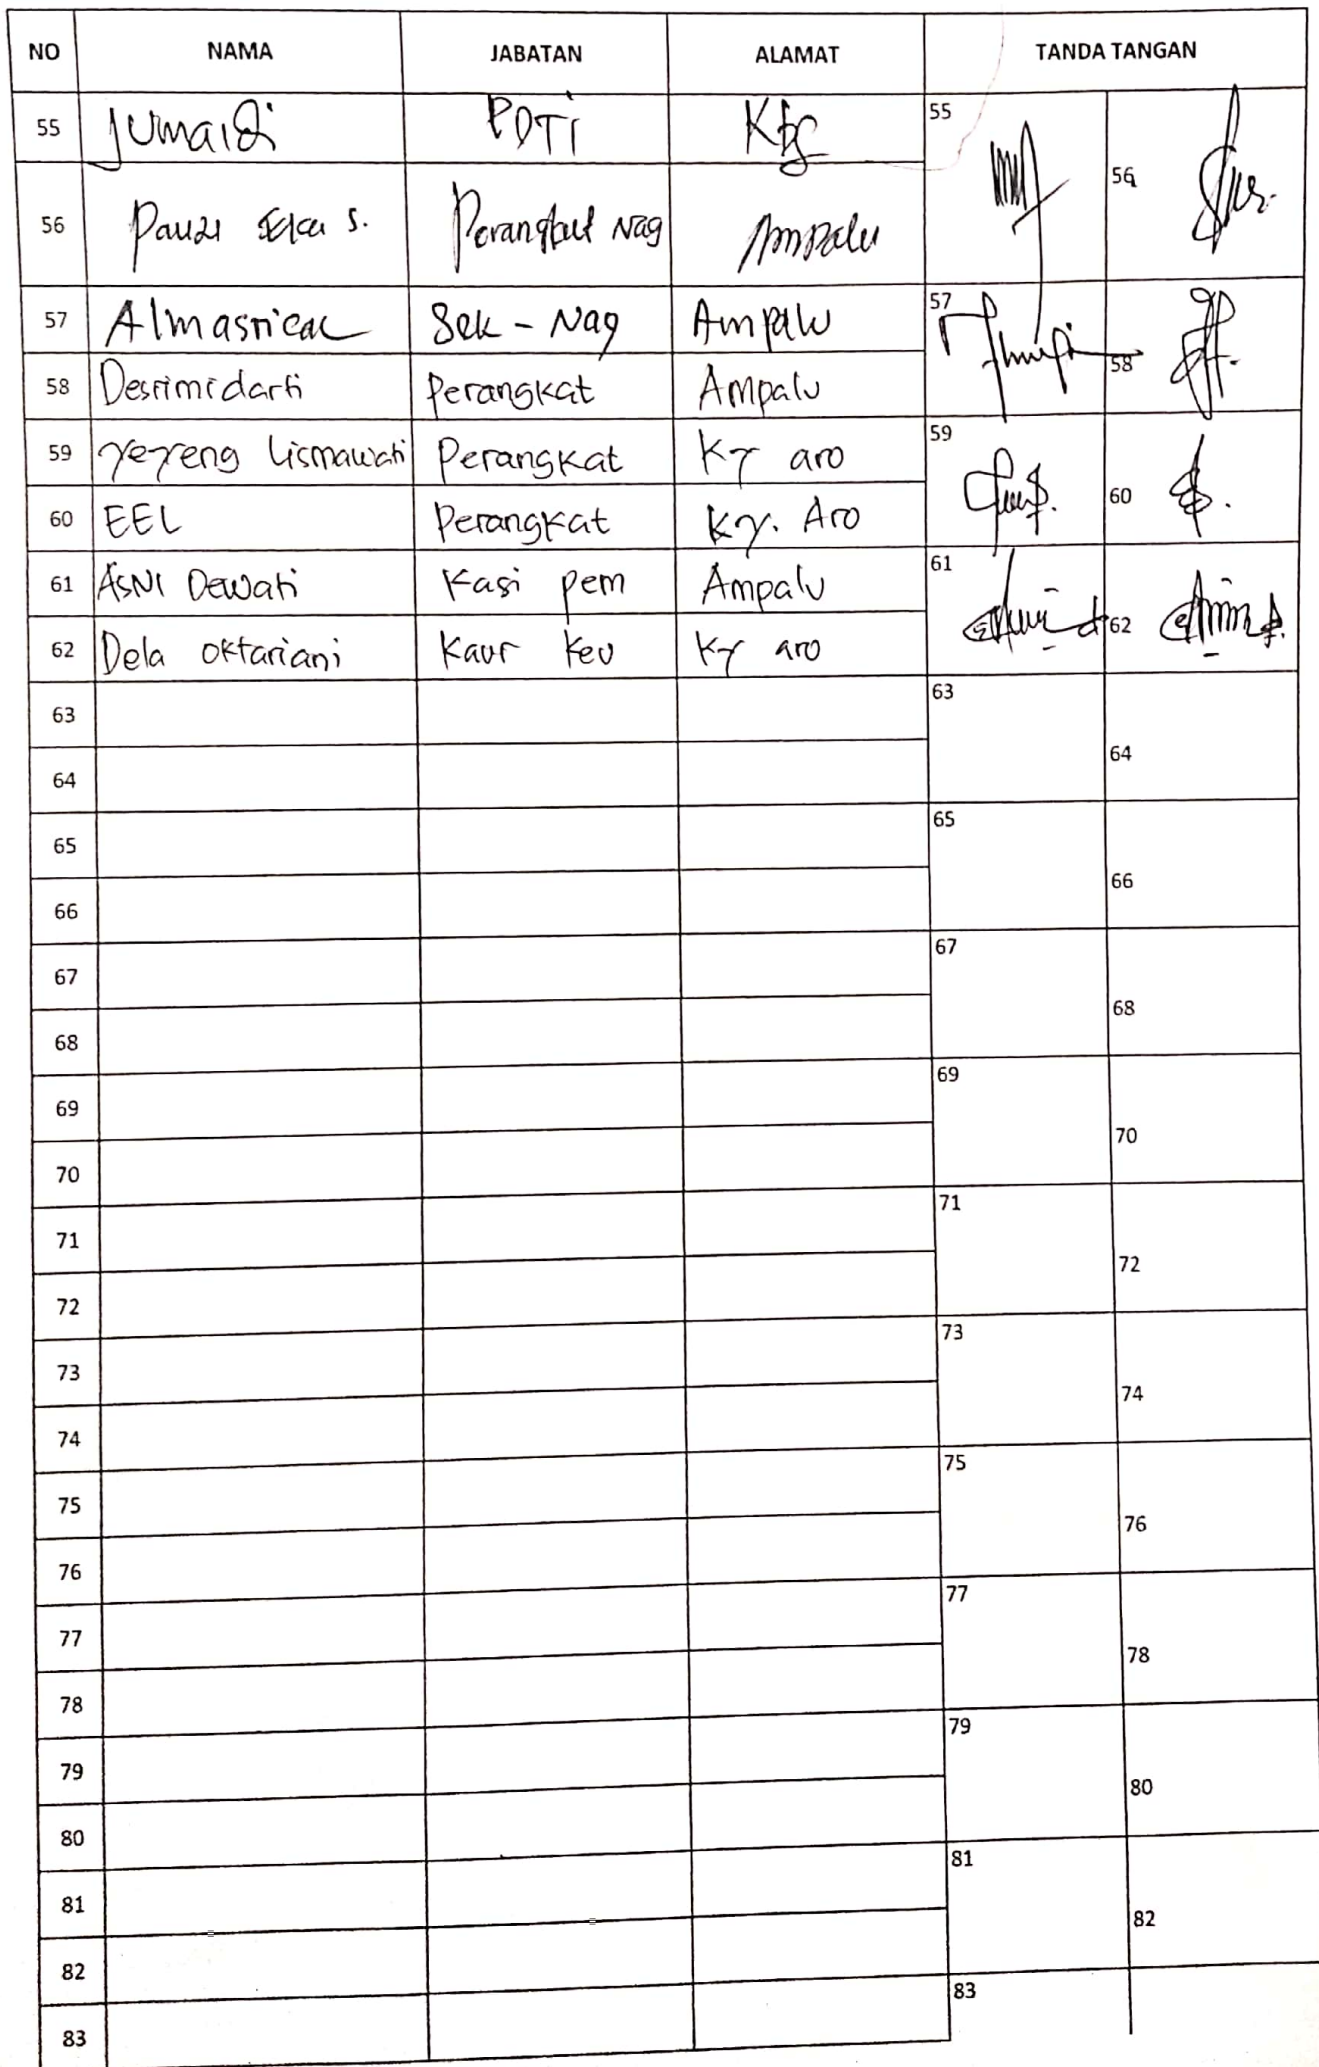 NO NAMA JABATAN ALAMAT TANDA TANGAN
55 Jumaidi PDTI Kbg 55
56 Pauzi Eka S. Perangkat Nag Ampalu 56
57 Almasrical Sek - Nag Ampalu 57
58 Desrimidarti Perangkat Ampalu 58
59 Yeyreng Lismawati Perangkat Ky aro 59
60 EEL Perangkat Ky. Aro 60
61 ASNI Dewati Kasi pem Ampalu 61
62 Dela oktariani Kaur keu Ky aro 62
63 63
64 64
65 65
66 66
67 67
68 68
69 69
70 70
71 71
72 72
73 73
74 74
75 75
76 76
77 77
78 78
79 79
80 80
81 81
82 82
83 83